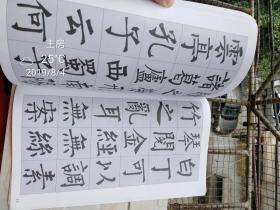 白丁可以調素
琴閱金經無絲
竹之亂耳無案
諸葛廬西蜀子
雲亭孔子云何
主房
25°C
2019/8/4